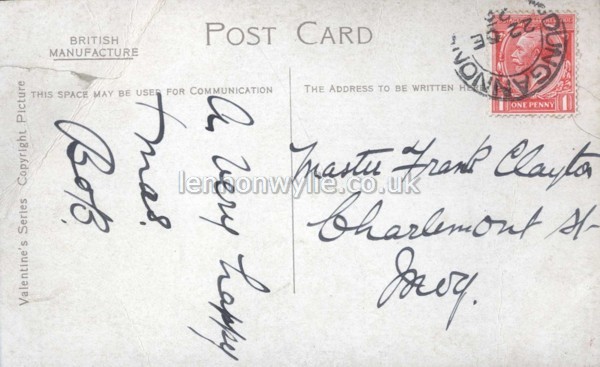 BRITISH
MANUFACTURE
POST CARD
THIS SPACE MAY BE USED FOR COMMUNICATION
THE ADDRESS TO BE WRITTEN HERE
Valentine's Series Copyright Picture
A Very happy
Xmas.
Bob.
Master Frank Clayton
Charlemont St
Moy.
DUNGANNON
22 DE
ONE PENNY
1
1
lennonwylie.co.uk